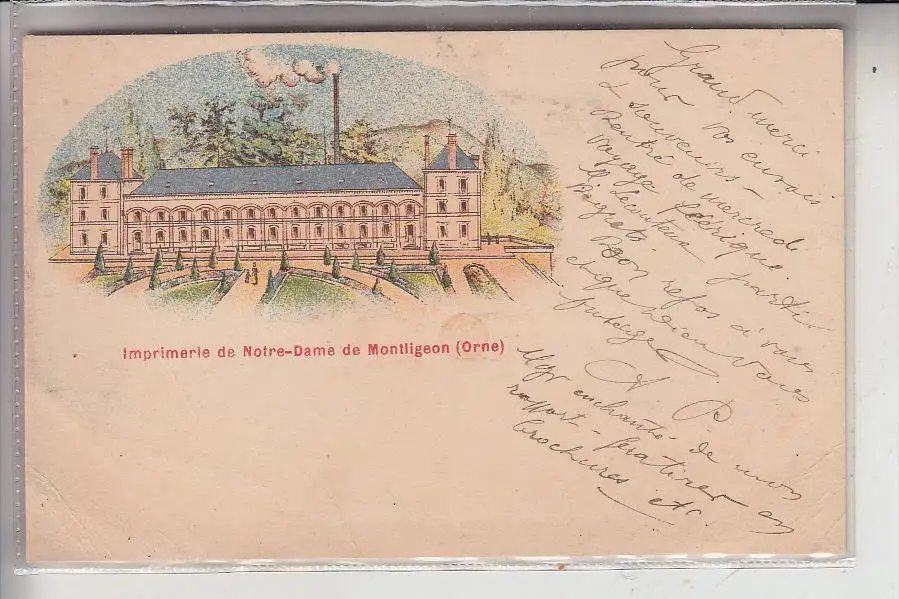 Imprimerie de Notre-Dame de Montligeon (Orne)
Grand merci
pour vos envois
& souvenirs -
Rentré de mercredi
voyage
parti
Bon repos à vous
chique Dieu vous
protège
A. P.
Mgr enchanté de mon
rapport - fera tirer en
brochures etc.